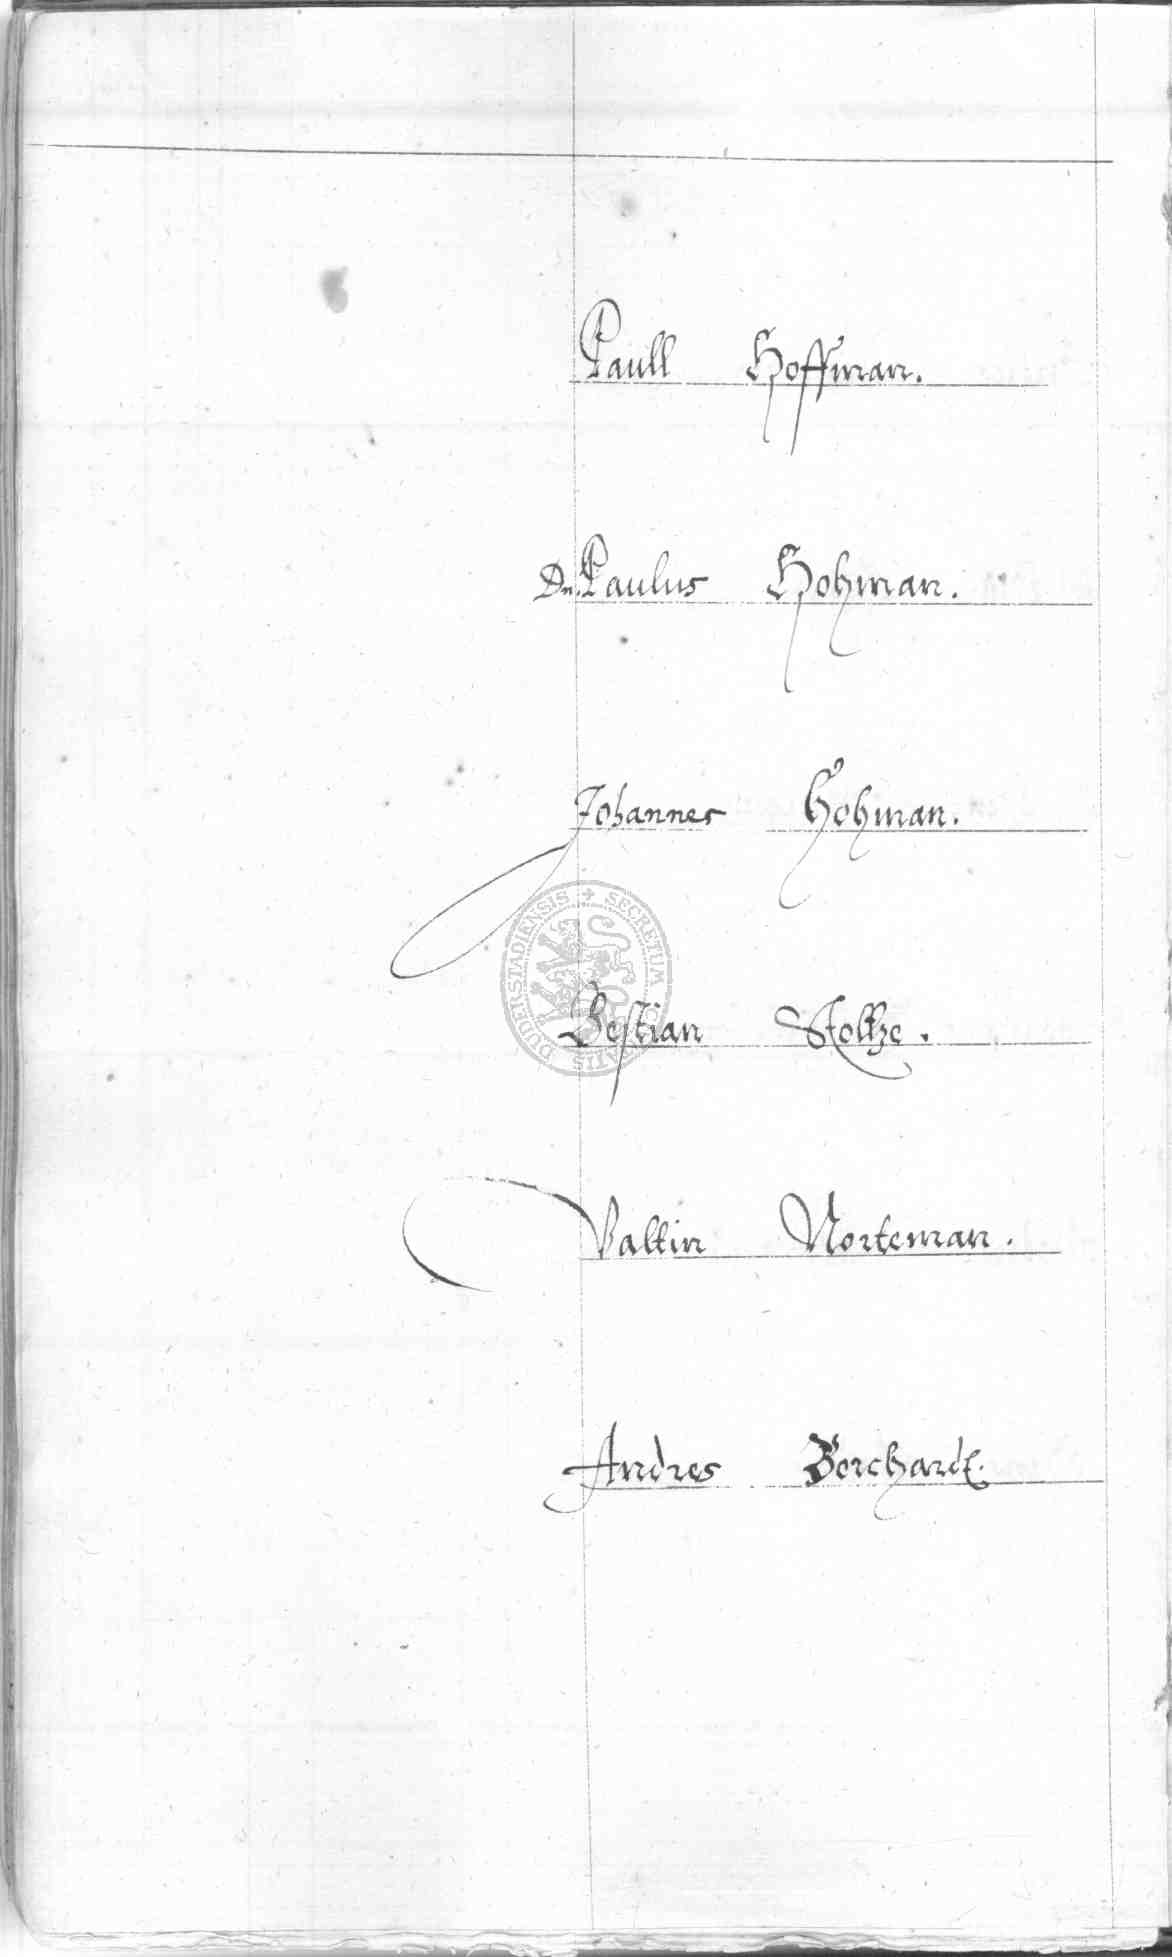 Paull Hoffman.
Dn. Paulus Hohman.
Johannes Hohman.
SECRETUM CIVITATIS DUDERSTADIENSIS
Bestian Stoltze.
Valtin Norteman.
Andres Borchardt.